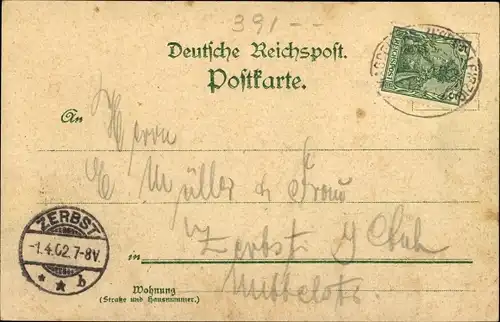 391 --
Deutsche Reichspost.
Postkarte.
An Herrn
E Müller & Frau
Zerbst
in
Wohnung
(Straße und Hausnummer.)
ZERBST
-1.4.02.7-8V.
* * b